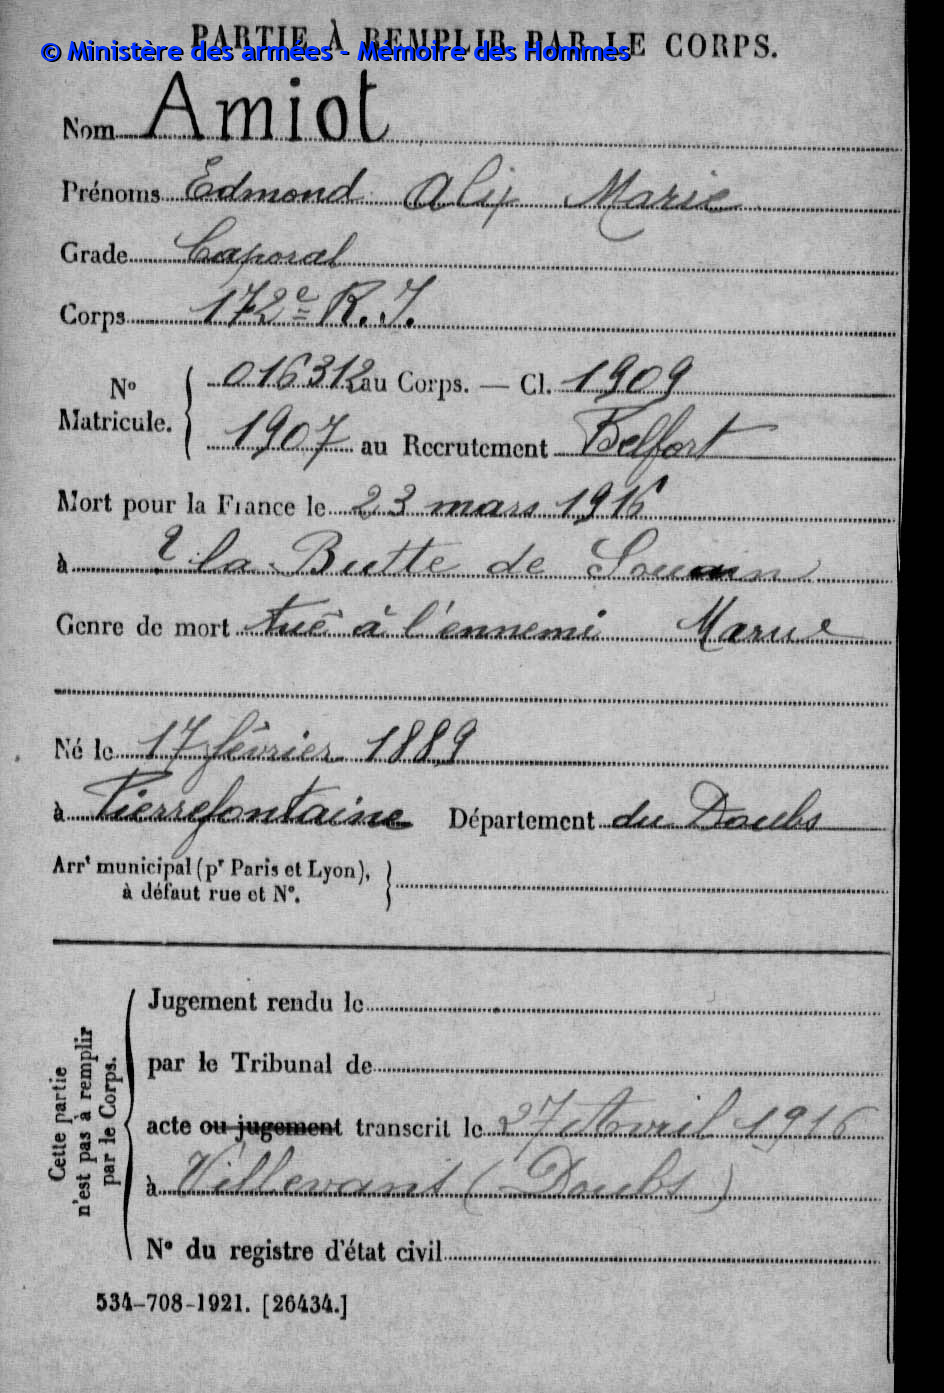 PARTIE À REMPLIR PAR LE CORPS.
© Ministère des armées - Mémoire des Hommes
Nom Amiot
Prénoms Edmond Alix Marie
Grade Caporal
Corps 172e R. I.
No Matricule. { 016312 au Corps. — Cl. 1909
1907 au Recrutement Belfort
Mort pour la France le 23 mars 1916
à la Butte de Souain
Genre de mort tué à l'ennemi Marne
Né le 17 février 1889
à Pierrefontaine Département du Doubs
Arrt municipal (pr Paris et Lyon),
à défaut rue et No.
Cette partie n'est pas à remplir par le Corps.
Jugement rendu le
par le Tribunal de
acte ou jugement transcrit le 27 Avril 1916
à Villevans (Doubs)
No du registre d'état civil
534-708-1921. [26434.]